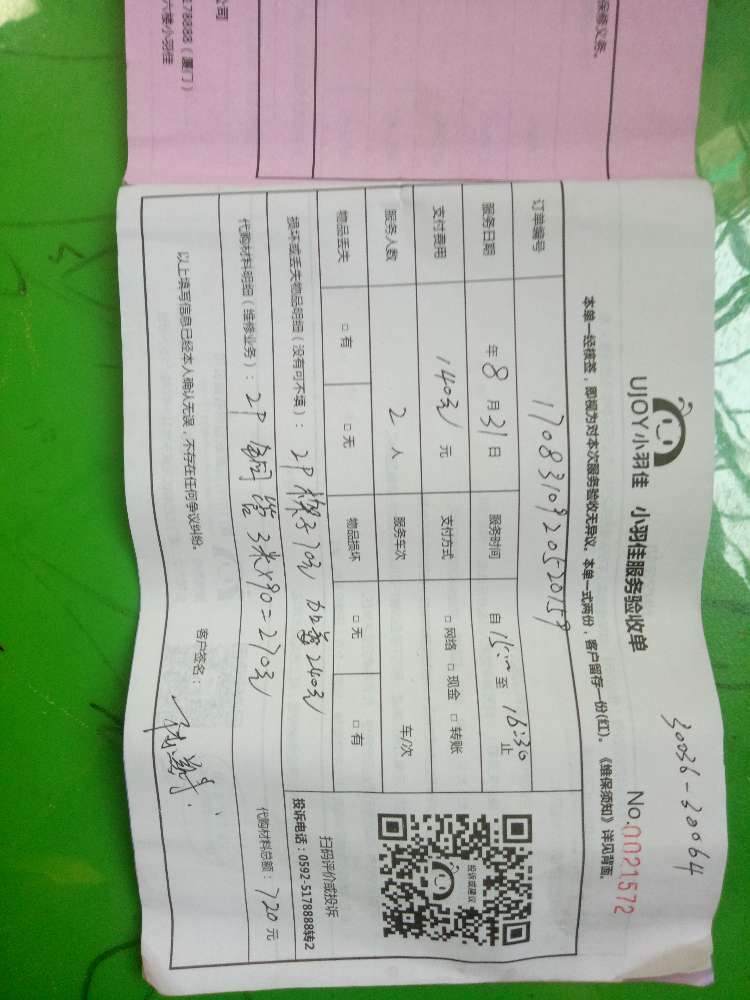 30036-30064
UJOY小羽佳 小羽佳服务验收单 No.0021572
本单一经核签，即视为对本次服务验收无异议。本单一式两份，客户留存一份(红)。《维保须知》详见背面。
订单编号 1708310920520159
服务日期 年 8 月 31 日 服务时间 自 15:00 至 16:30 止
支付费用 140元 元 支付方式 □网络 □现金 □转账
服务人数 2 人 服务车次 车/次
物品丢失 □有 □无 物品损坏 □无 □有
投诉或建议
扫码评价或投诉
投诉电话：0592-5178888转2
损坏或丢失物品明细（没有可不填）： 2P 架子70元 加 240元
代购材料明细（维修业务）： 2P 铜管 3米×90=270元
代购材料总额： 720 元
以上填写信息已经本人确认无误，不存在任何争议纠纷。
客户签名：
保修义务。
公司
178888（厦门）
六楼小羽佳